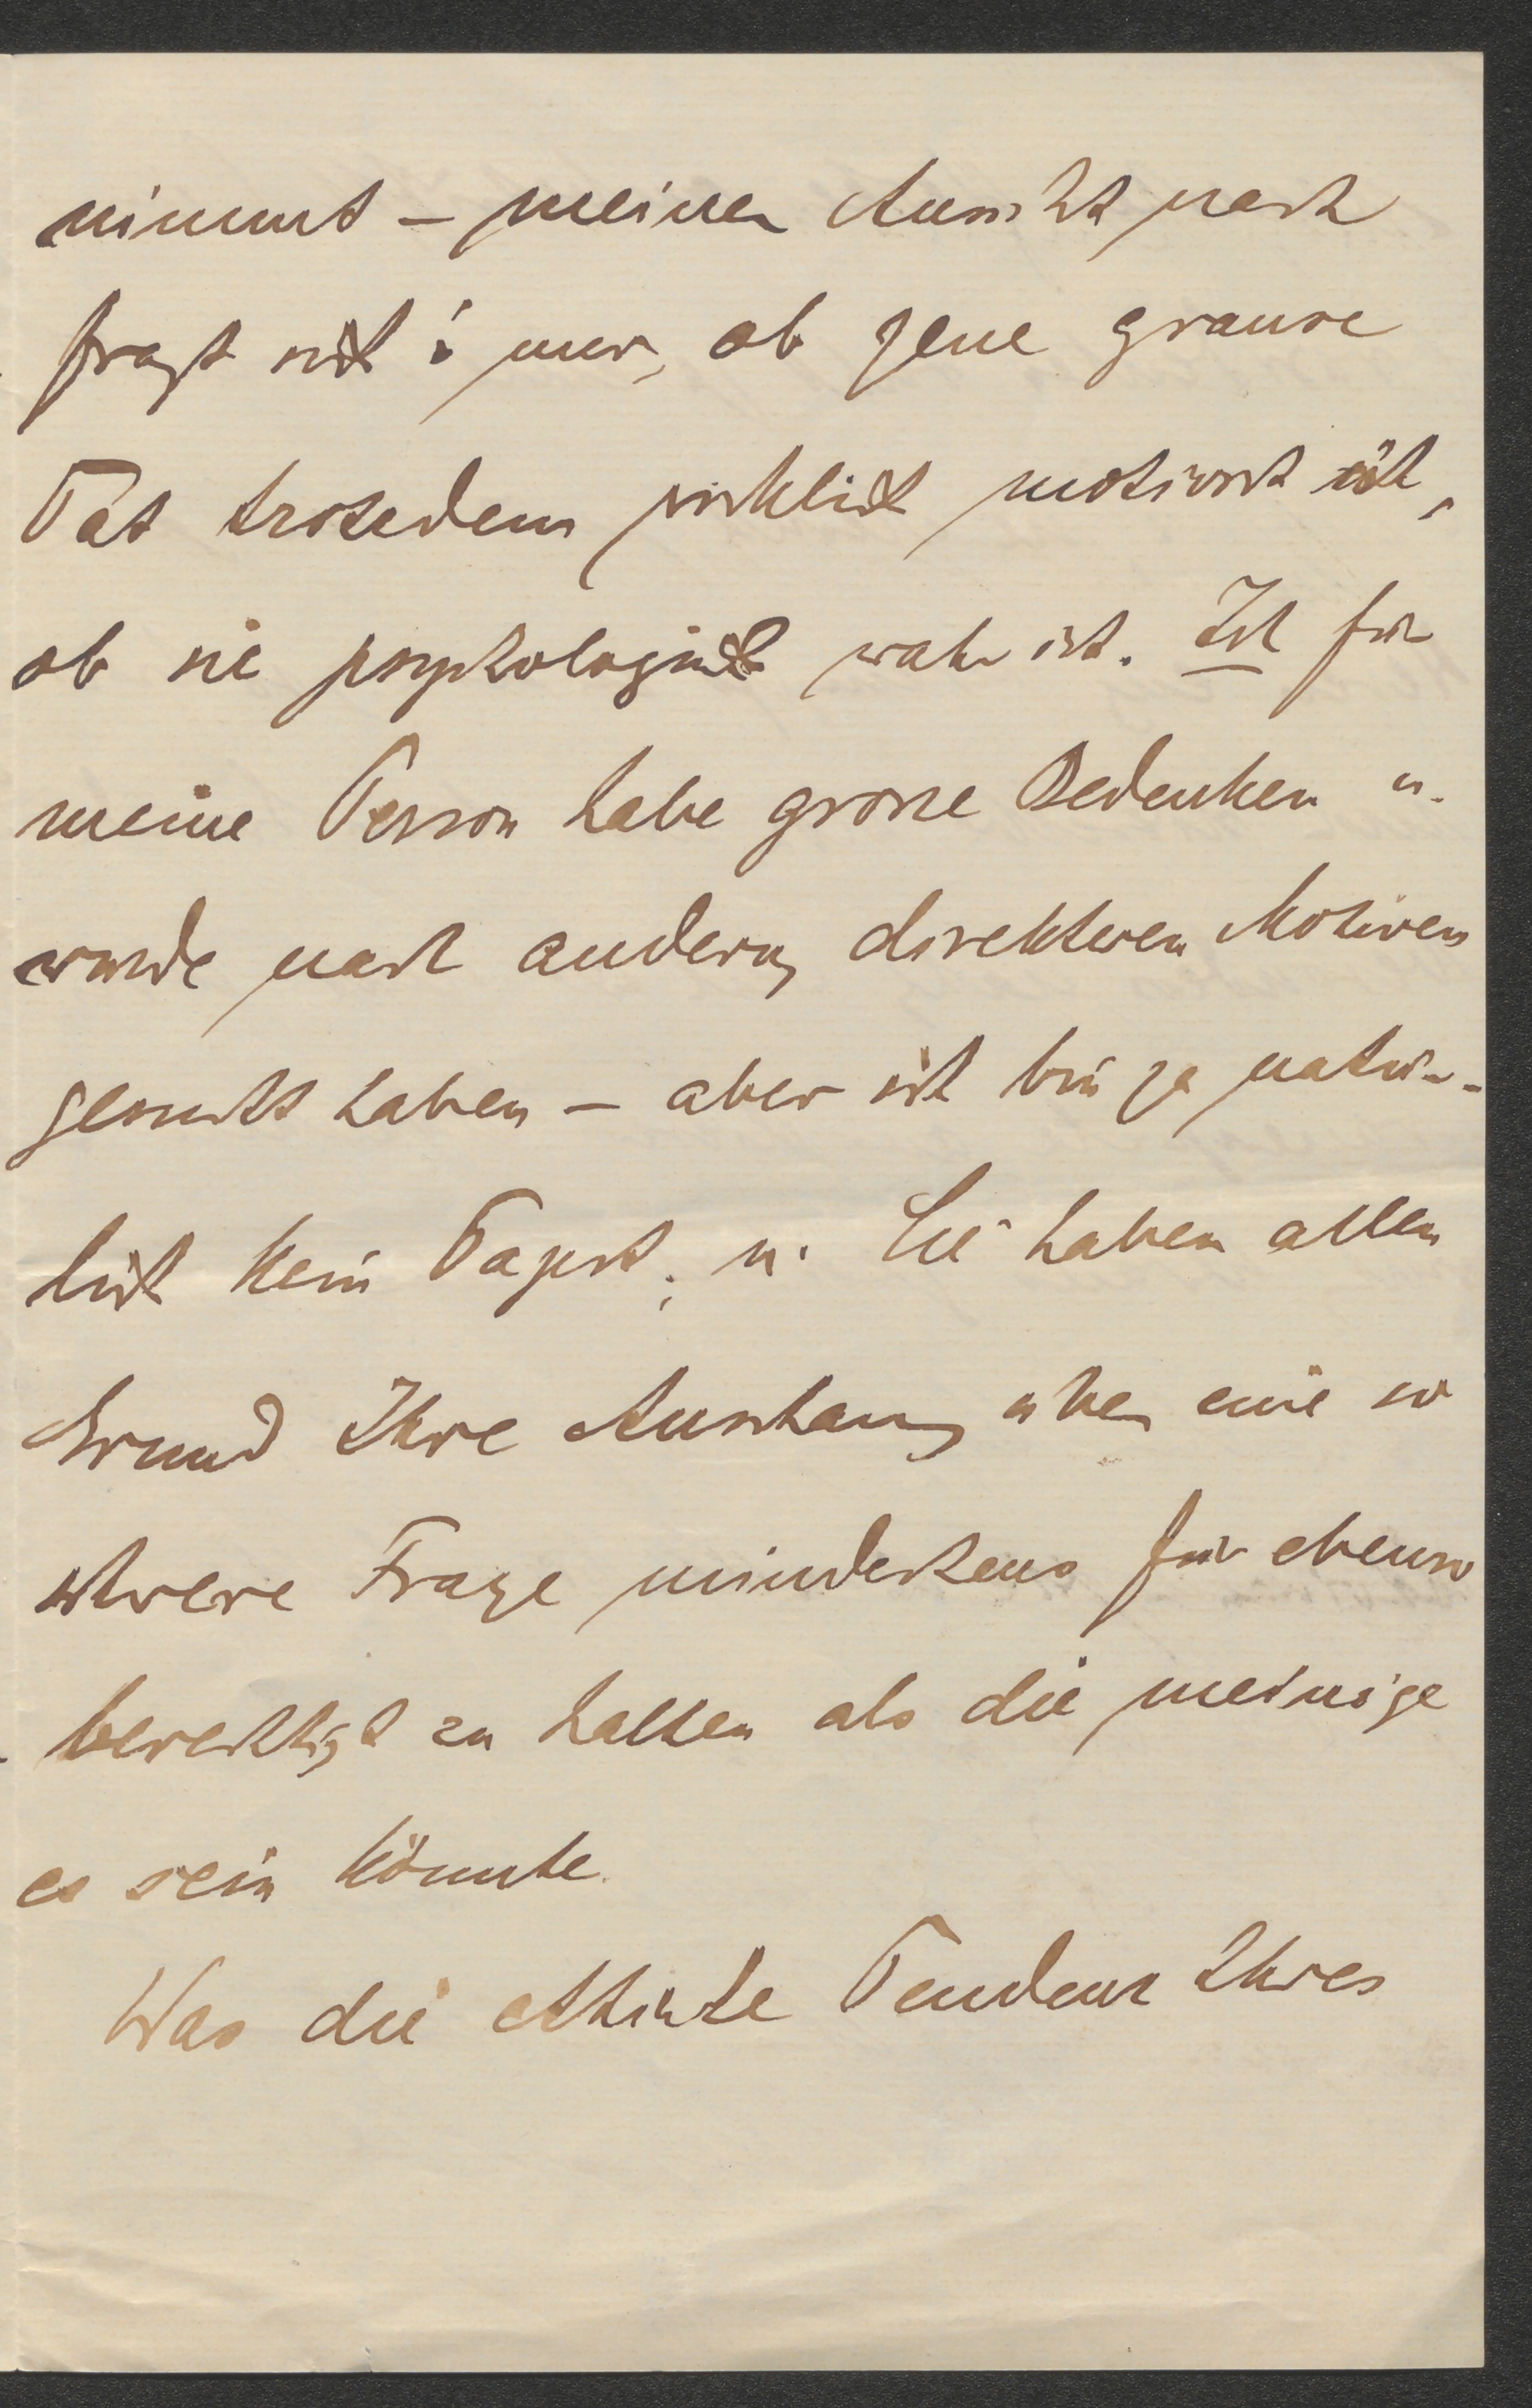 nimmt – meiner Ansicht nach
fragt sich's nur, ob jene grause
Tat trotzdem wirklich motivirt ist,
ob sie psychologisch wahr ist. Ich für
meine Person habe grosse Bedenken u.
würde nach andern, direkteren Motiven
gesucht haben – aber ich bin ja natür-
lich kein Papst, u. Sie haben allen
Grund Ihre Anschauung über eine so
schwere Frage mindestens für ebenso
berechtigt zu halten als die meinige
es sein könnte.
Was die ethische Tendenz Ihres